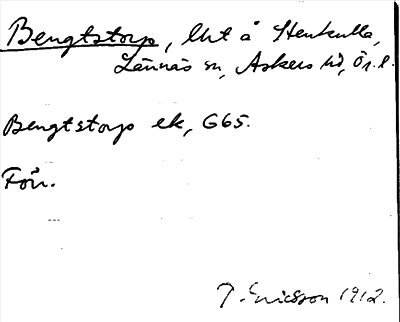 Bengtstorp, lht å Stenkulla,
Lännäs sn, Askers hd, Ör. l.
Bengtstorps ek, G65.
Förr.
T. Ericsson 1912.